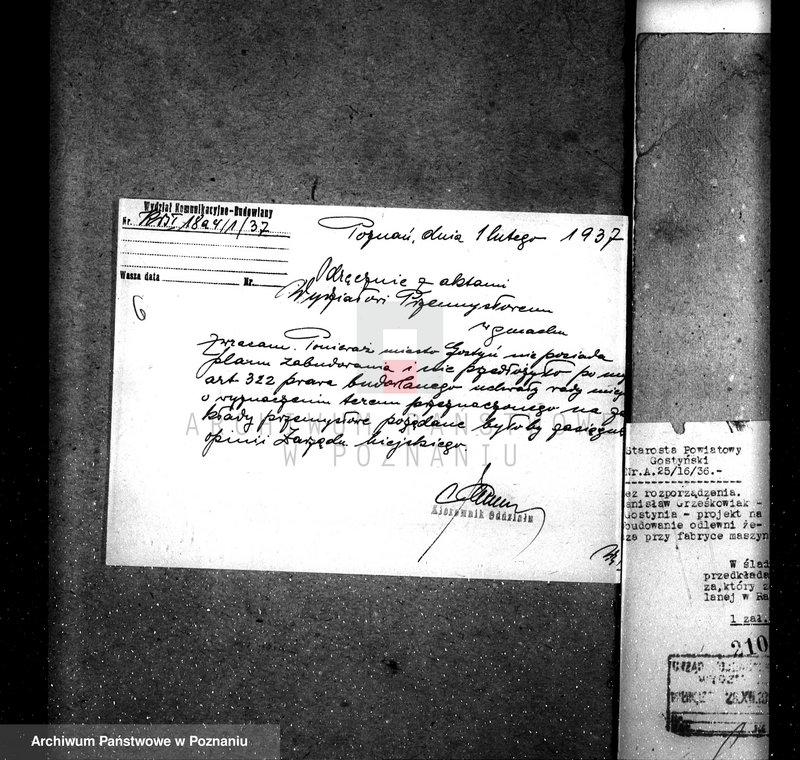 Wydział Komunikacyjno-Budowlany
Nr. 1894/1/37
Wasza data Nr.
Poznań, dnia 1 lutego 1937
6
Odręcznie z aktami
Wydziałowi Przemysłowemu
w gmachu
zwracam. Ponieważ miasto Gostyń nie posiada
planu zabudowania i nie przedłożyło po myśl
art 322 prawa budowlanego uchwały rady miej
o wyznaczeniu terenu przeznaczonego na za
kłady przemysłowe pożądane byłoby zasięgnąć
opinii Zarządu Miejskiego.
Kierownik Oddziału
ARCHIWUM PAŃSTWOWE
W POZNANIU
Starosta Powiatowy
Gostyński
Nr.A.25/16/36.-
ez rozporządzenia.
anisław Grześkowiak -
Gostynia - projekt na
budowanie odlewni że-
za przy fabryce maszyn
W ślad
przedkłada
za,który z
lanej w Ra
1 zał.
210
Archiwum Państwowe w Poznaniu